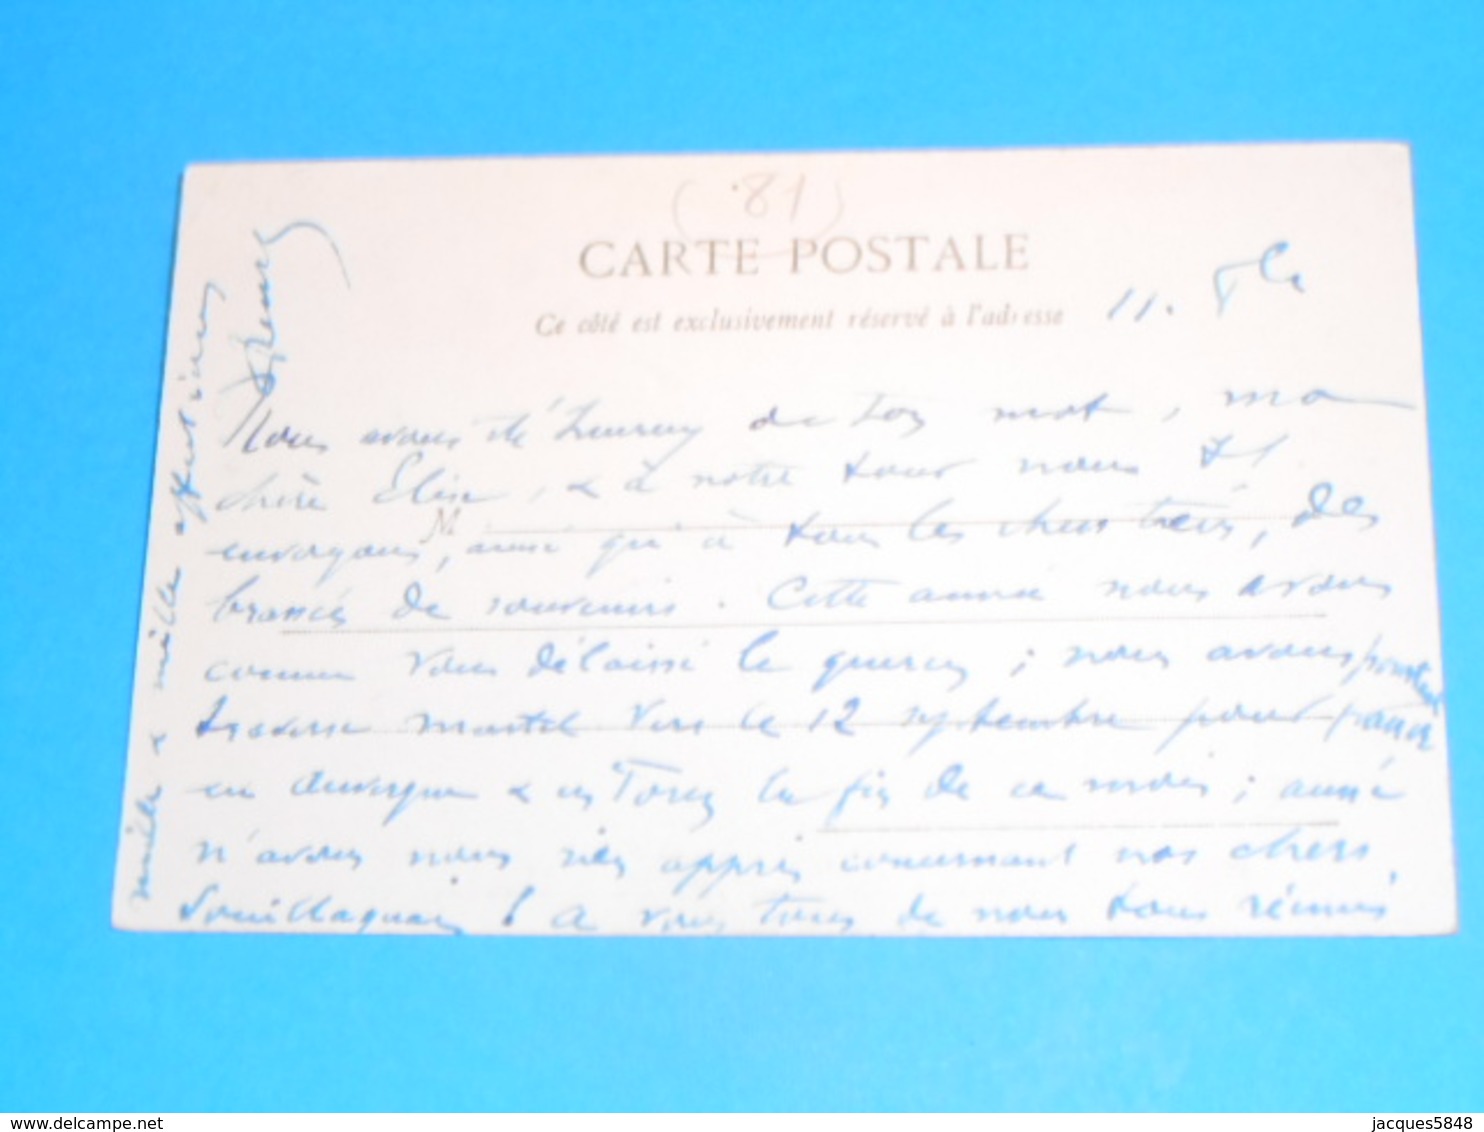 (81)
CARTE POSTALE
Ce côté est exclusivement réservé à l'adresse
11. 8bre
Nous avons été heureux de ton mot, ma
chère Elise, & à notre tour nous t'
M
envoyons, ainsi qu'à tous les chers tiens, des
de souvenirs. Cette année nous avons
comme vous délaissé le quercy ; nous avons pourtant
traversé Martel vers le 12 septembre pour passer
en Auvergne & en la fin de ce mois ; aussi
n'avons nous rien appris concernant nos chers
Souillaguais ! A vous tous de nous tous réunis
mille & mille affectueux
delcampe.net
jacques5848